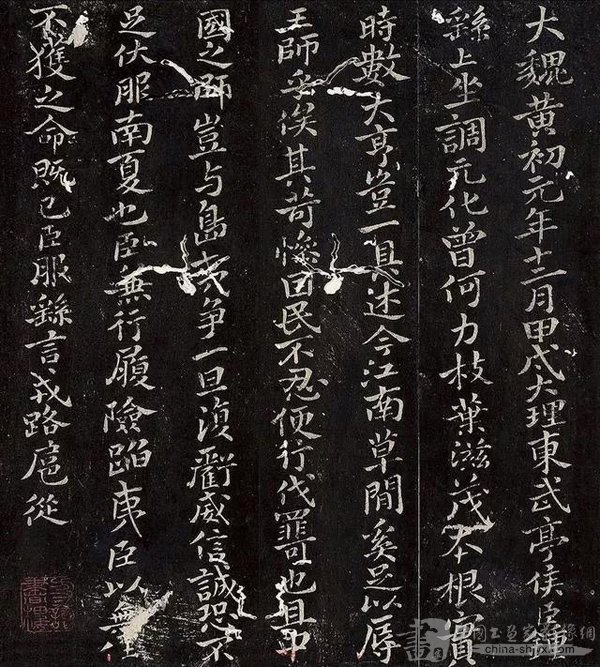 大魏黄初元年十二月甲戌大理東武亭侯臣繇
繇上坐調元化曾何力枝葉滋茂本根實
時數大亨豈一具述今江南草間奚足以辱
王師妥俟其苛慘困民不忍便行伐罪可也且中
國之師豈与島夷争一旦須威信誠恐不
足伏服南夏也臣無行履險蹈夷臣以無任
不獲之命既已臣服繇言戎路扈從